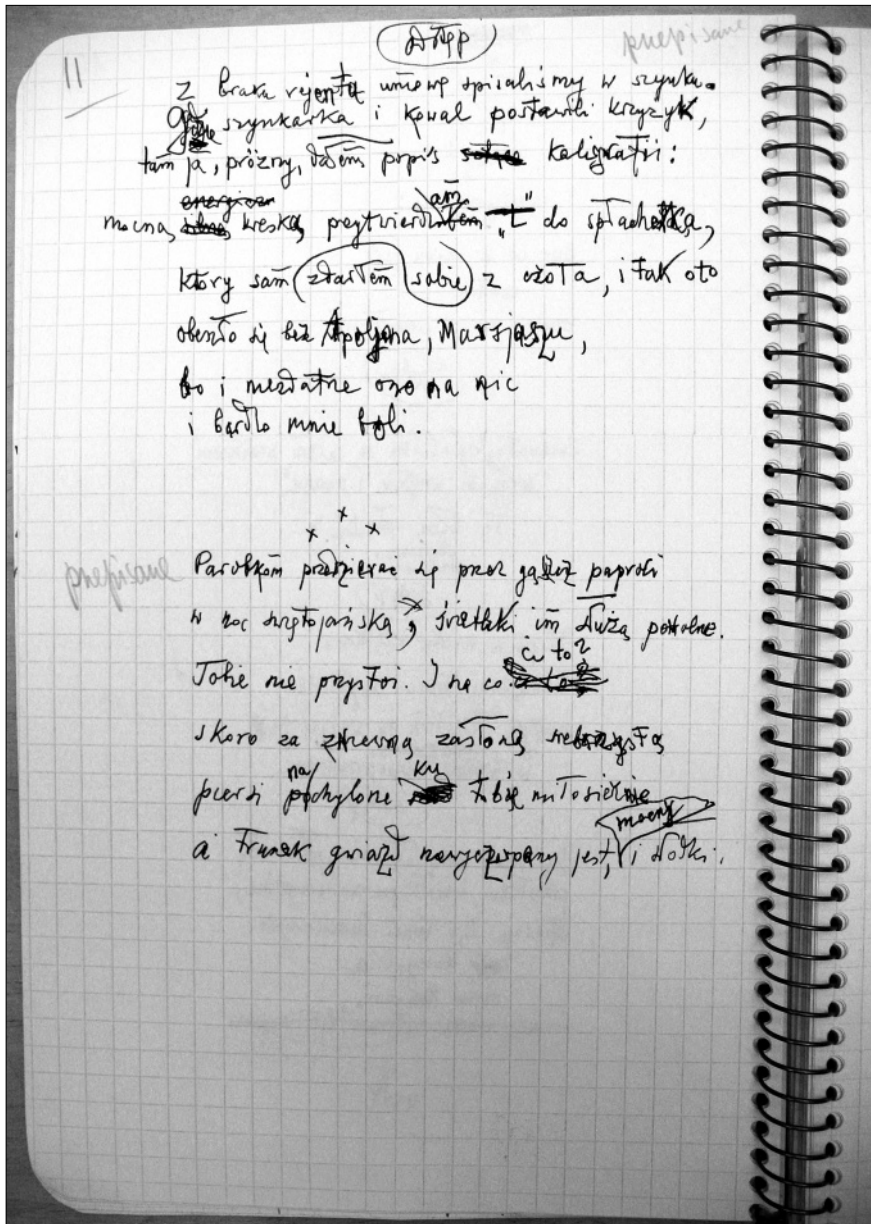 11
przepisane
z braku rejenta umowę spisaliśmy w szynku.
Gdzie szynkarka i kowal postawili krzyżyk,
tam ja, próżny, dałem popis kaligrafii:
mocną kreską przytwierdzam "t" do spłachetka,
który sam zdarłem sobie z czoła, i tak oto
obeszło się bez Apoljona, Marsjaszu,
bo i niezdatne ono na nic
i bardzo mnie boli.
x x x
przepisane
Parobkom przedzierać się przez gąszcz paproci
w noc świętojańską, świetliki im służą pomocne.
Tobie nie przystoi. I na co ci to?
skoro za zasłoną
piersi nachylone ku tobie miłosiernie
a trunek gwiazd jest mocny, i słodki.